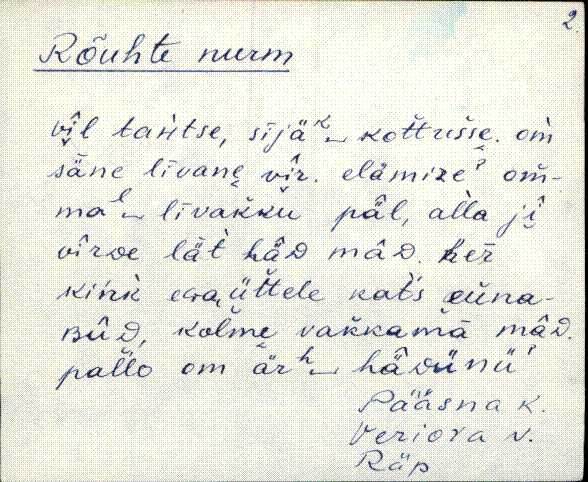 2.
Rõuhte nurm
vîl tańtse, sījäᵏ‿kot̆tuššе. om̀
säne līvane vîr. elämizeˀ om̆-
maˡ‿līvak̆ku päl, alla jî
vîrde lät̀ hǟd mâd. her̄
kińk egaüt̆tele kat̀s aùna-
Bûd, kolme vak̆kamā mâd.
pal̆lo om ärʰ‿hǟdünüˀ
Pääsna k.
Veriora v.
Räp